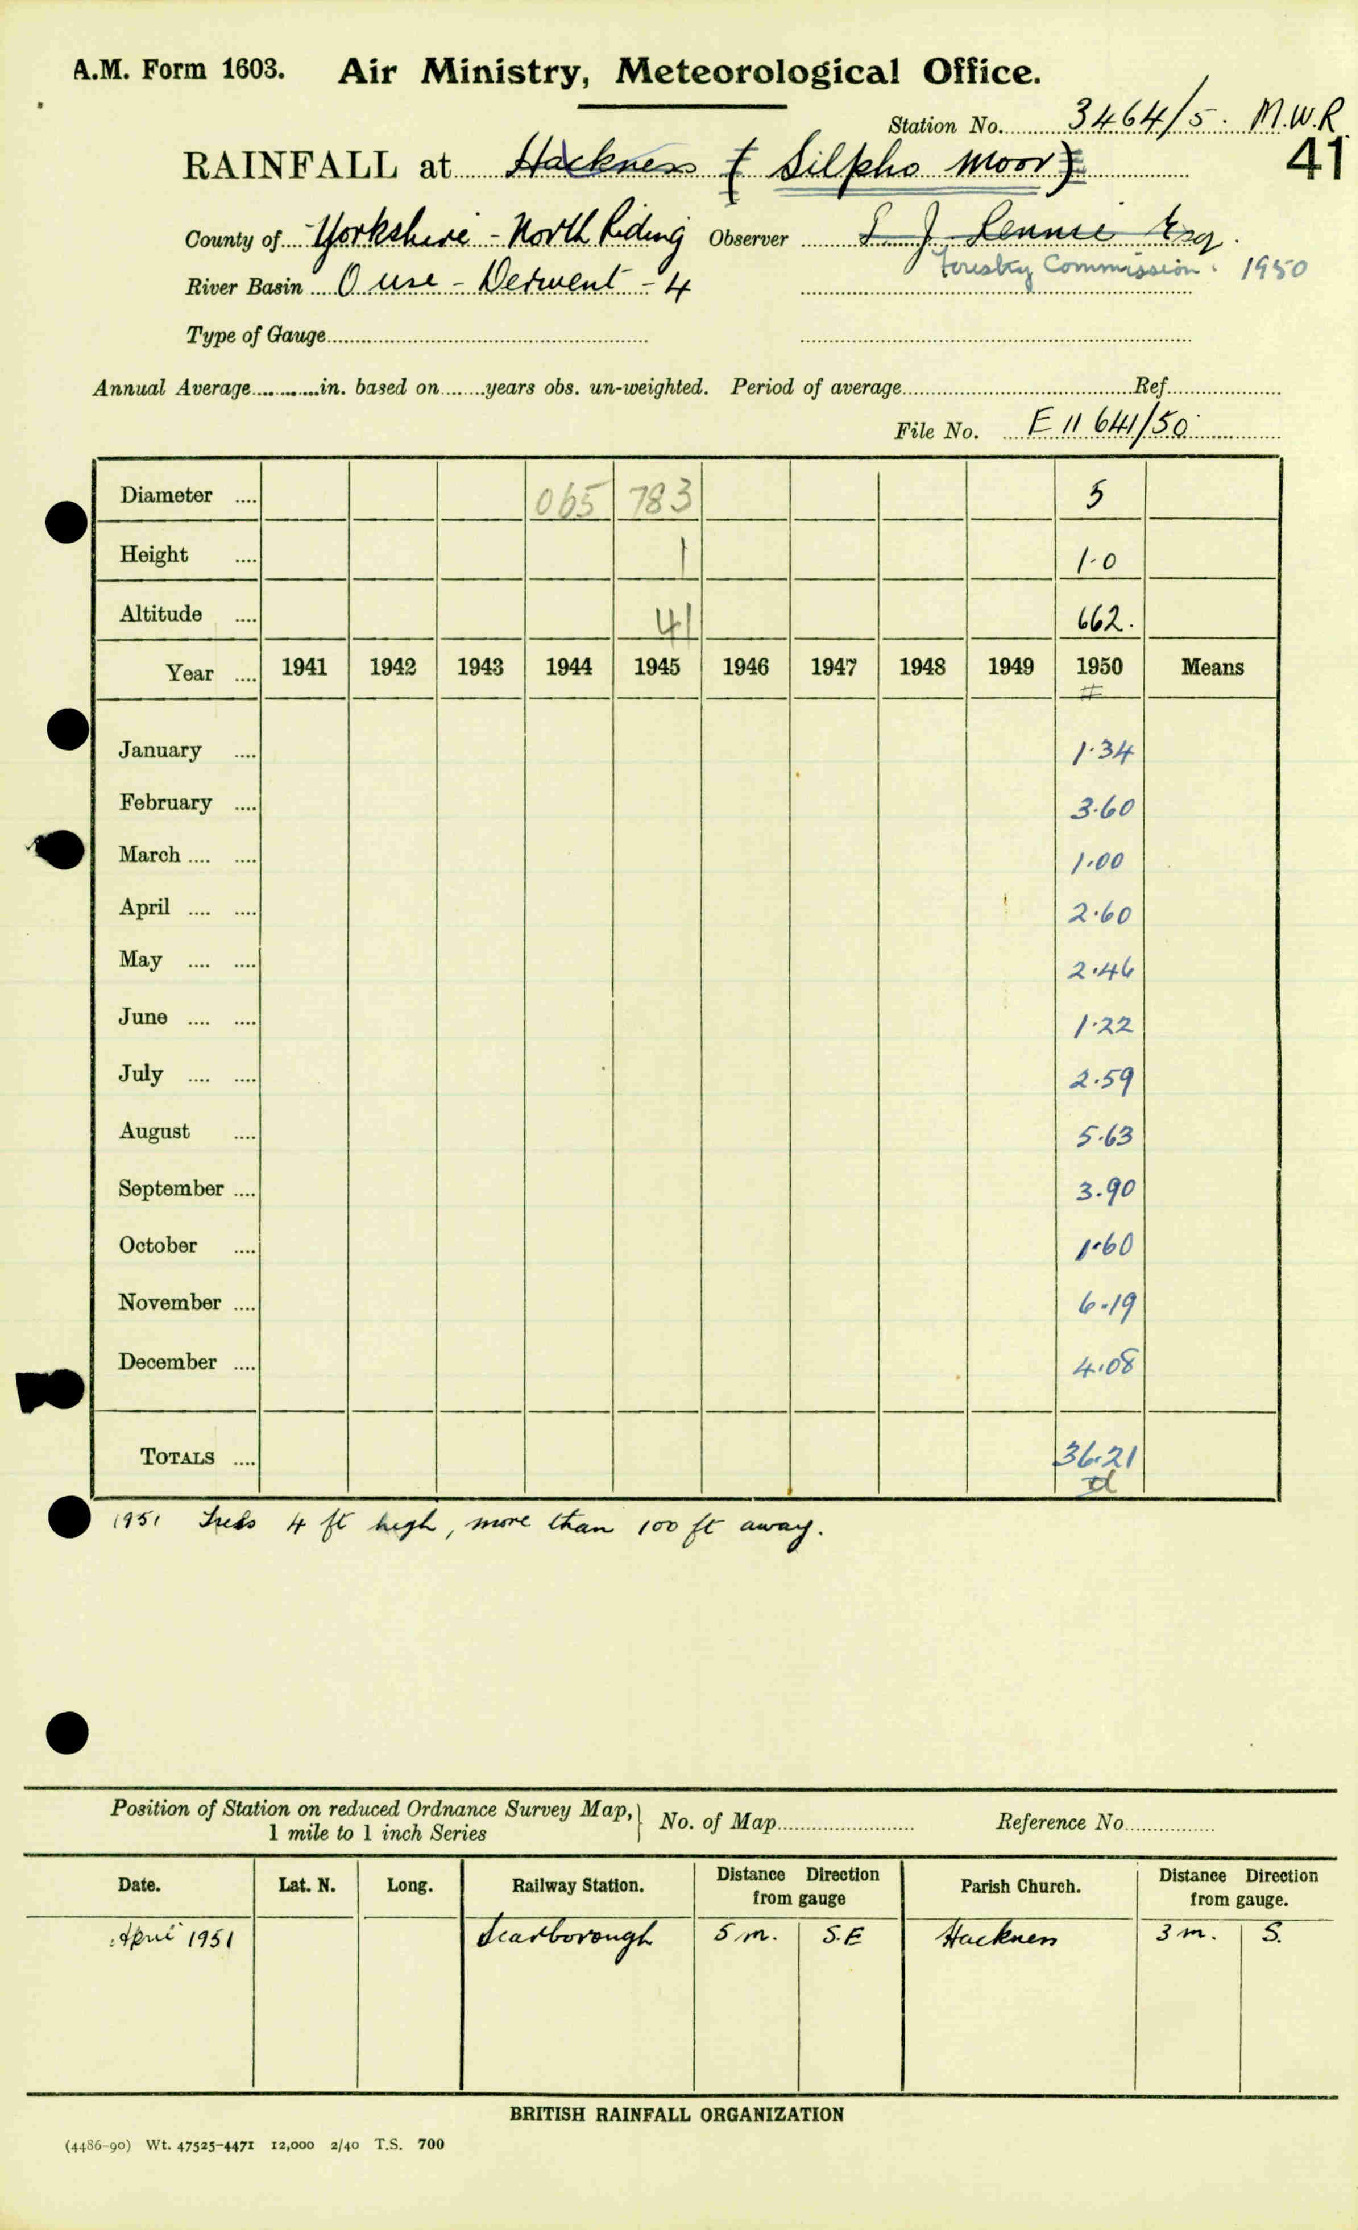 A.M. Form 1603. Air Ministry, Meteorological Office.
Station No. 3464/5. M.W.R.
RAINFALL at Hackness (Silpho Moor) 41
County of Yorkshire - North Riding Observer J Rennie Esq.
Forestry Commission. 1950
River Basin Ouse - Derwent - 4
Type of Gauge
Annual Average in. based on years obs. un-weighted. Period of average Ref.
File No. E 11641/50
Diameter 065 783 5
Height 1 1.0
Altitude 41 662.
Year 1941 1942 1943 1944 1945 1946 1947 1948 1949 1950 Means
#
January 1.34
February 3.60
March 1.00
April 2.60
May 2.46
June 1.22
July 2.59
August 5.63
September 3.90
October 1.60
November 6.19
December 4.08
TOTALS 36.21
d
1951 Trees 4 ft high, more than 100 ft away.
Position of Station on reduced Ordnance Survey Map, 1 mile to 1 inch Series } No. of Map Reference No.
Date. Lat. N. Long. Railway Station. Distance Direction from gauge Parish Church. Distance Direction from gauge.
April 1951 Scarborough 5 m. S.E Hackness 3 m. S.
BRITISH RAINFALL ORGANIZATION
(4486-90) Wt. 47525-4471 12,000 2/40 T.S. 700